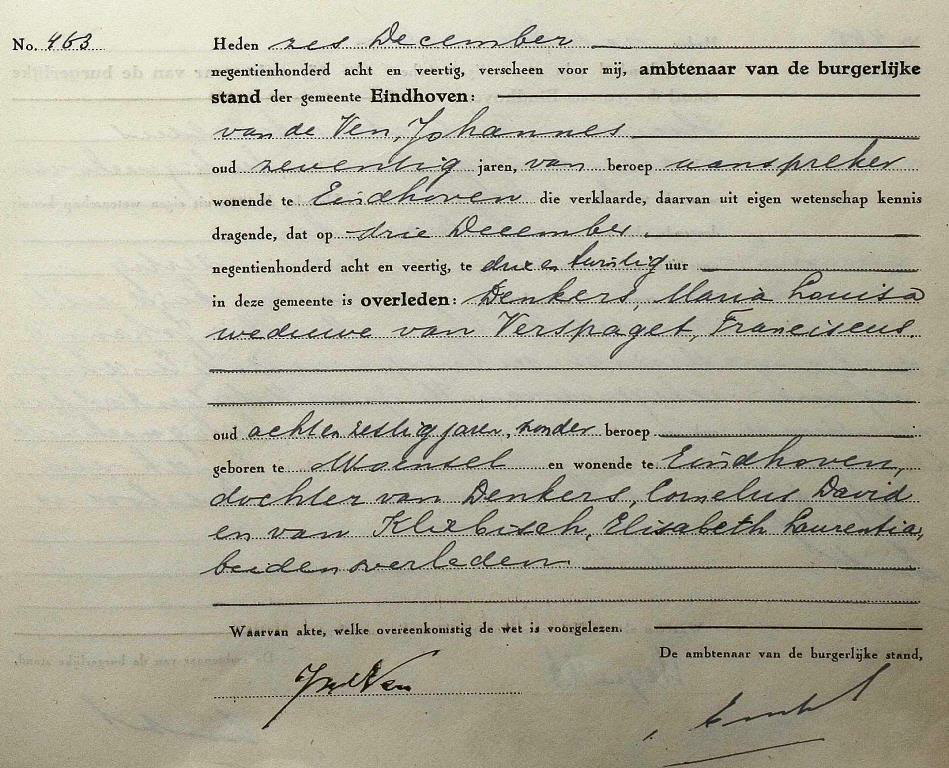 No. 463
Heden zes December
negentienhonderd acht en veertig, verscheen voor mij, ambtenaar van de burgerlijke
stand der gemeente Eindhoven:
van de Ven, Johannes
oud zeventig jaren, van beroep aanspreker
wonende te Eindhoven die verklaarde, daarvan uit eigen wetenschap kennis
dragende, dat op drie December
negentienhonderd acht en veertig, te drie en twintig uur
in deze gemeente is overleden: Denkers, Maria Louisa
weduwe van Verspaget, Franciscus.
oud achtenzestig jaren, zonder beroep
geboren te Woensel en wonende te Eindhoven,
dochter van Denkers, Cornelus David
en van Klerbisch, Elisabeth Laurentia,
beiden overleden
Waarvan akte, welke overeenkomstig de wet is voorgelezen.
De ambtenaar van de burgerlijke stand,
JvdVen